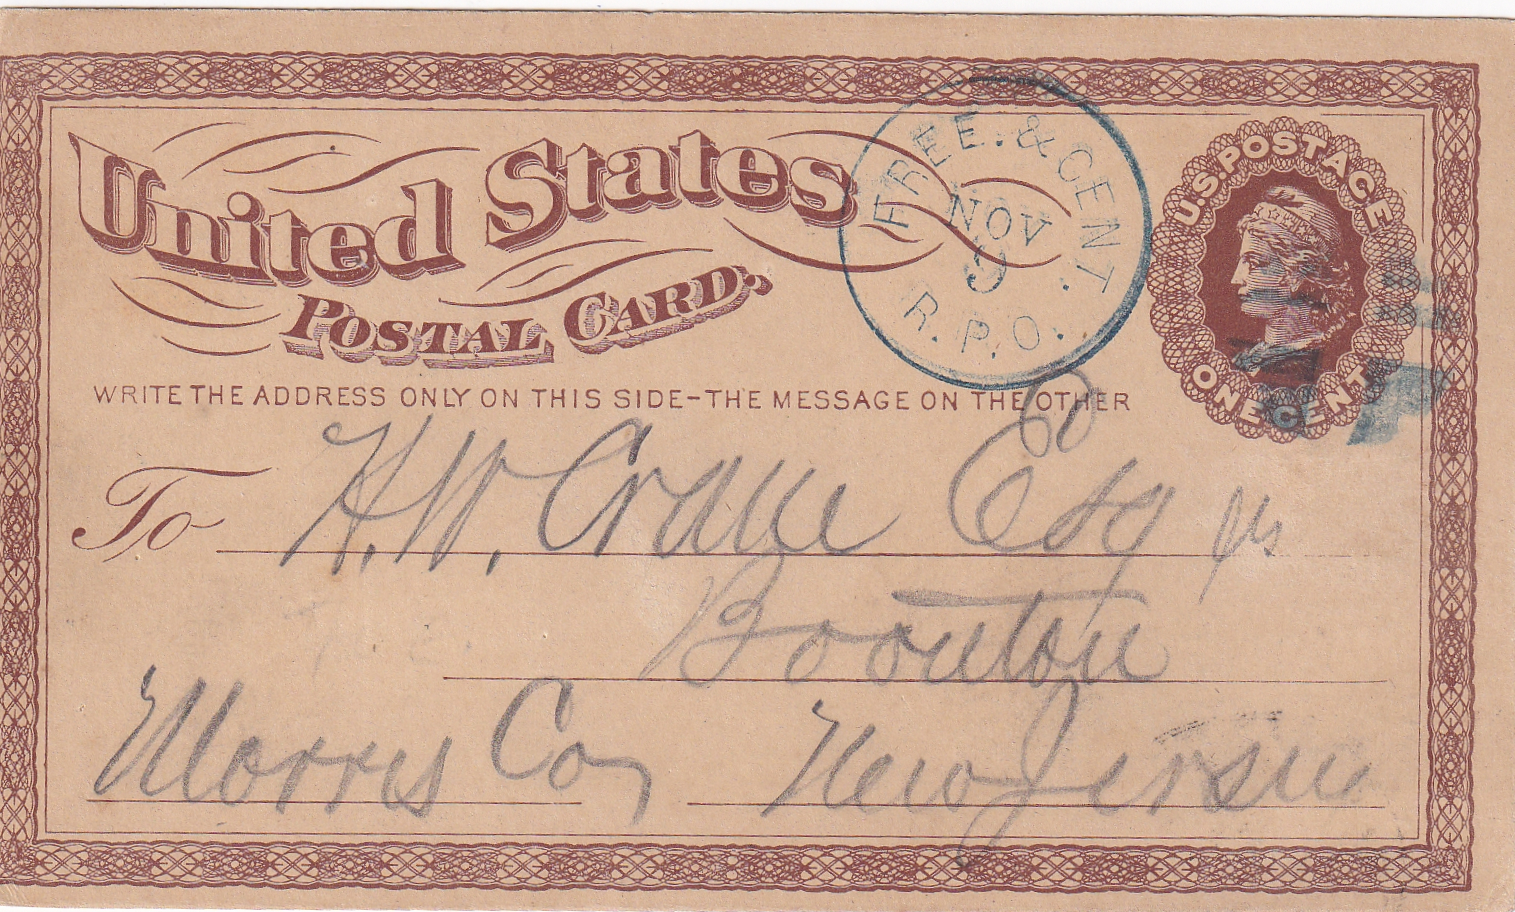 United States
POSTAL CARD.
U.S. POSTAGE
ONE CENT
FREE. & CENT.
NOV
9
R.P.O.
WRITE THE ADDRESS ONLY ON THIS SIDE-THE MESSAGE ON THE OTHER
60
To H. W. Crane Esq
Boonton
Morris Co New Jersey